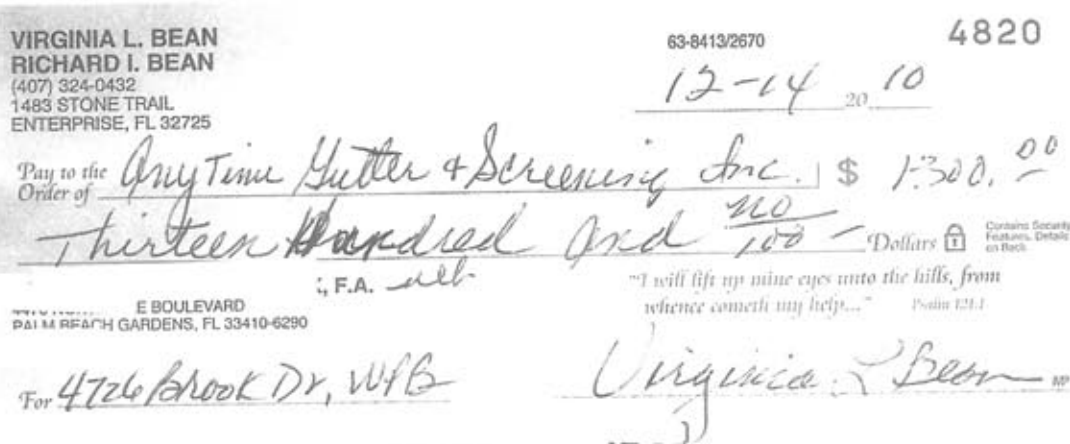 VIRGINIA L. BEAN
RICHARD I. BEAN
(407) 324-0432
1483 STONE TRAIL
ENTERPRISE, FL 32725
63-8413/2670
4820
12-14 20 10
Pay to the Order of Anytime Gutter & Screening Inc. $ 1300.00
Thirteen Hundred and no/100 Dollars
Contains Security Features. Details on Back.
, F.A.
E BOULEVARD
PALM BEACH GARDENS, FL 33410-6290
"I will lift up mine eyes unto the hills, from
whence cometh my help..." Psalm 121:1
For 4726 Brook Dr, WPB
Virginia L Bean MP